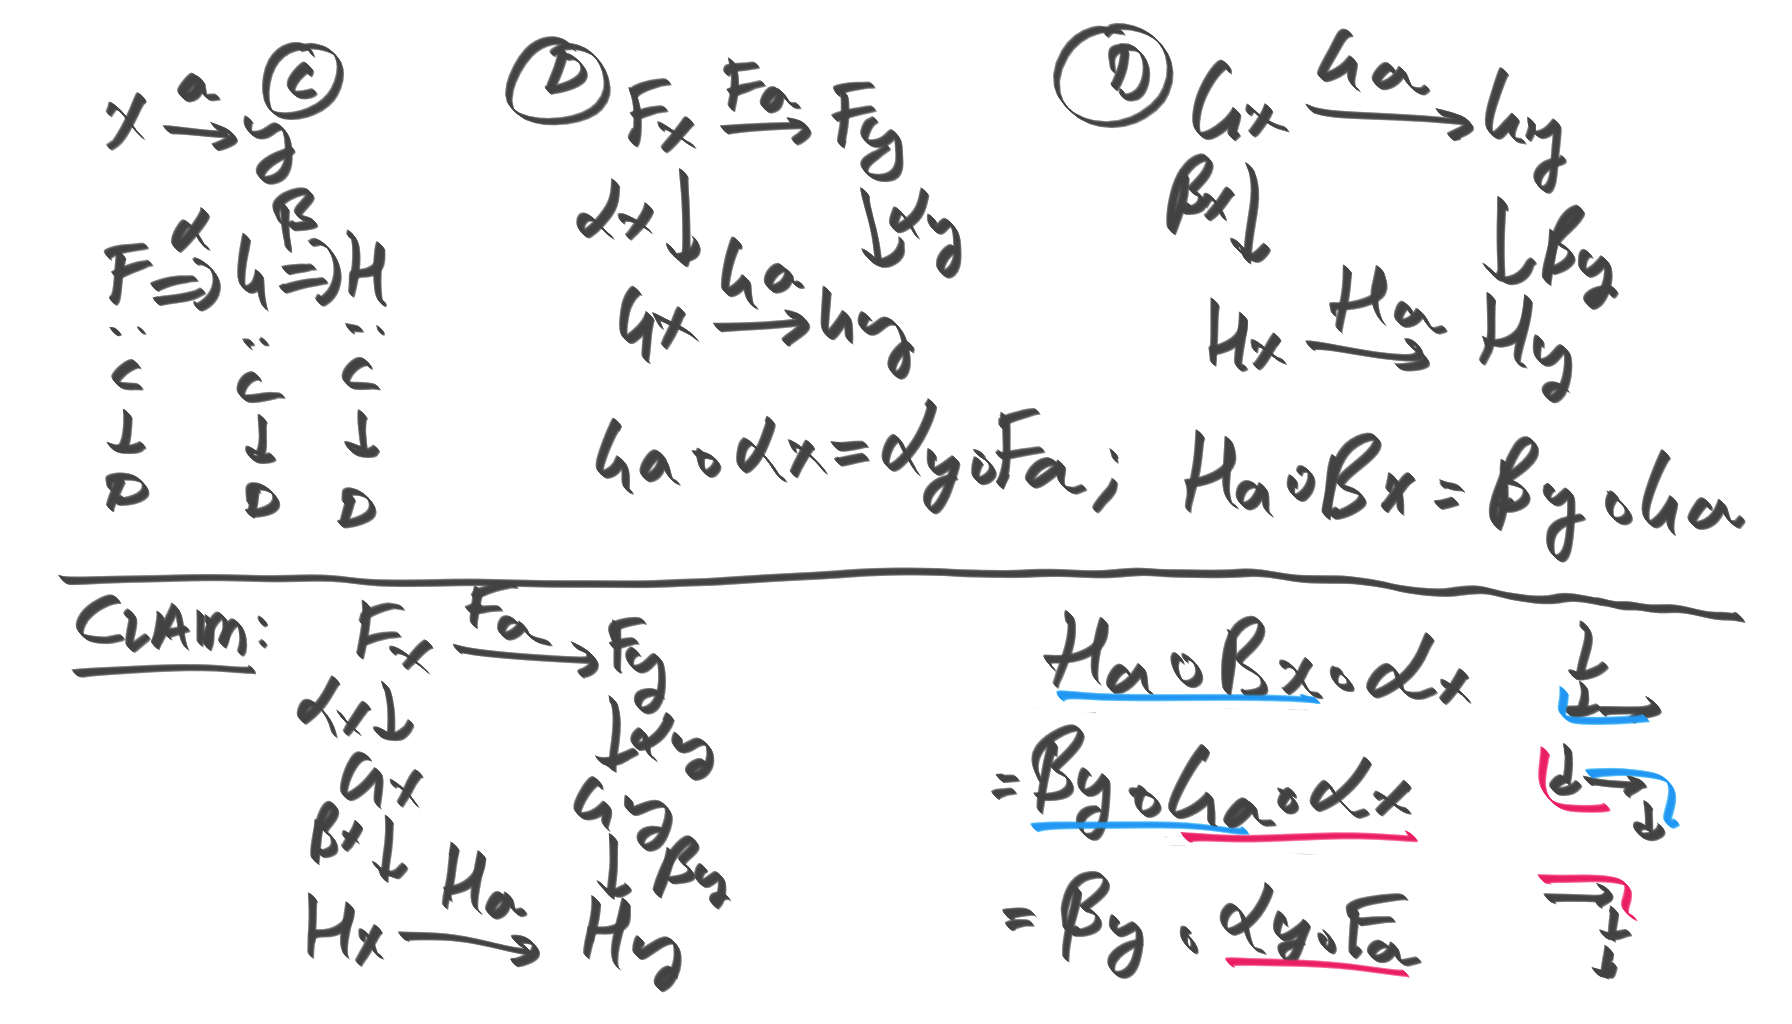 x a→ y Ⓒ
F α⇒ G β⇒ H
: : :
C C C
↓ ↓ ↓
D D D
Ⓓ Fx Fa→ Fy
αx ↓ ↓ αy
Gx Ga→ Gy
Ga∘αx = αy∘Fa;
Ⓓ Gx Ga→ Gy
βx ↓ ↓ βy
Hx Ha→ Hy
Ha∘βx = βy∘Ga
CLAIM:
Fx Fa→ Fy
αx ↓ ↓ αy
Gx Gy
βx ↓ ↓ βy
Hx Ha→ Hy
Ha∘βx∘αx
= βy∘Ga∘αx
= βy∘αy∘Fa